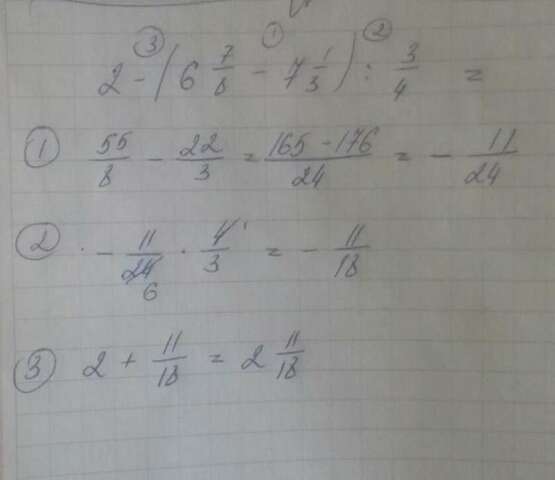 ③ ① ②
2 - (6 7/8 - 7 1/3) : 3/4 =
① 55/8 - 22/3 = 165 - 176/24 = - 11/24
② · - 11/24 · 4/3 = - 11/18
6 1
③ 2 + 11/18 = 2 11/18